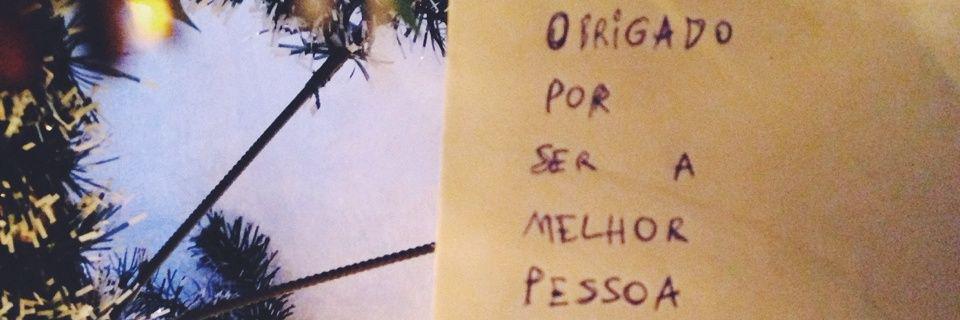 OBRIGADO
POR
SER A
MELHOR
PESSOA